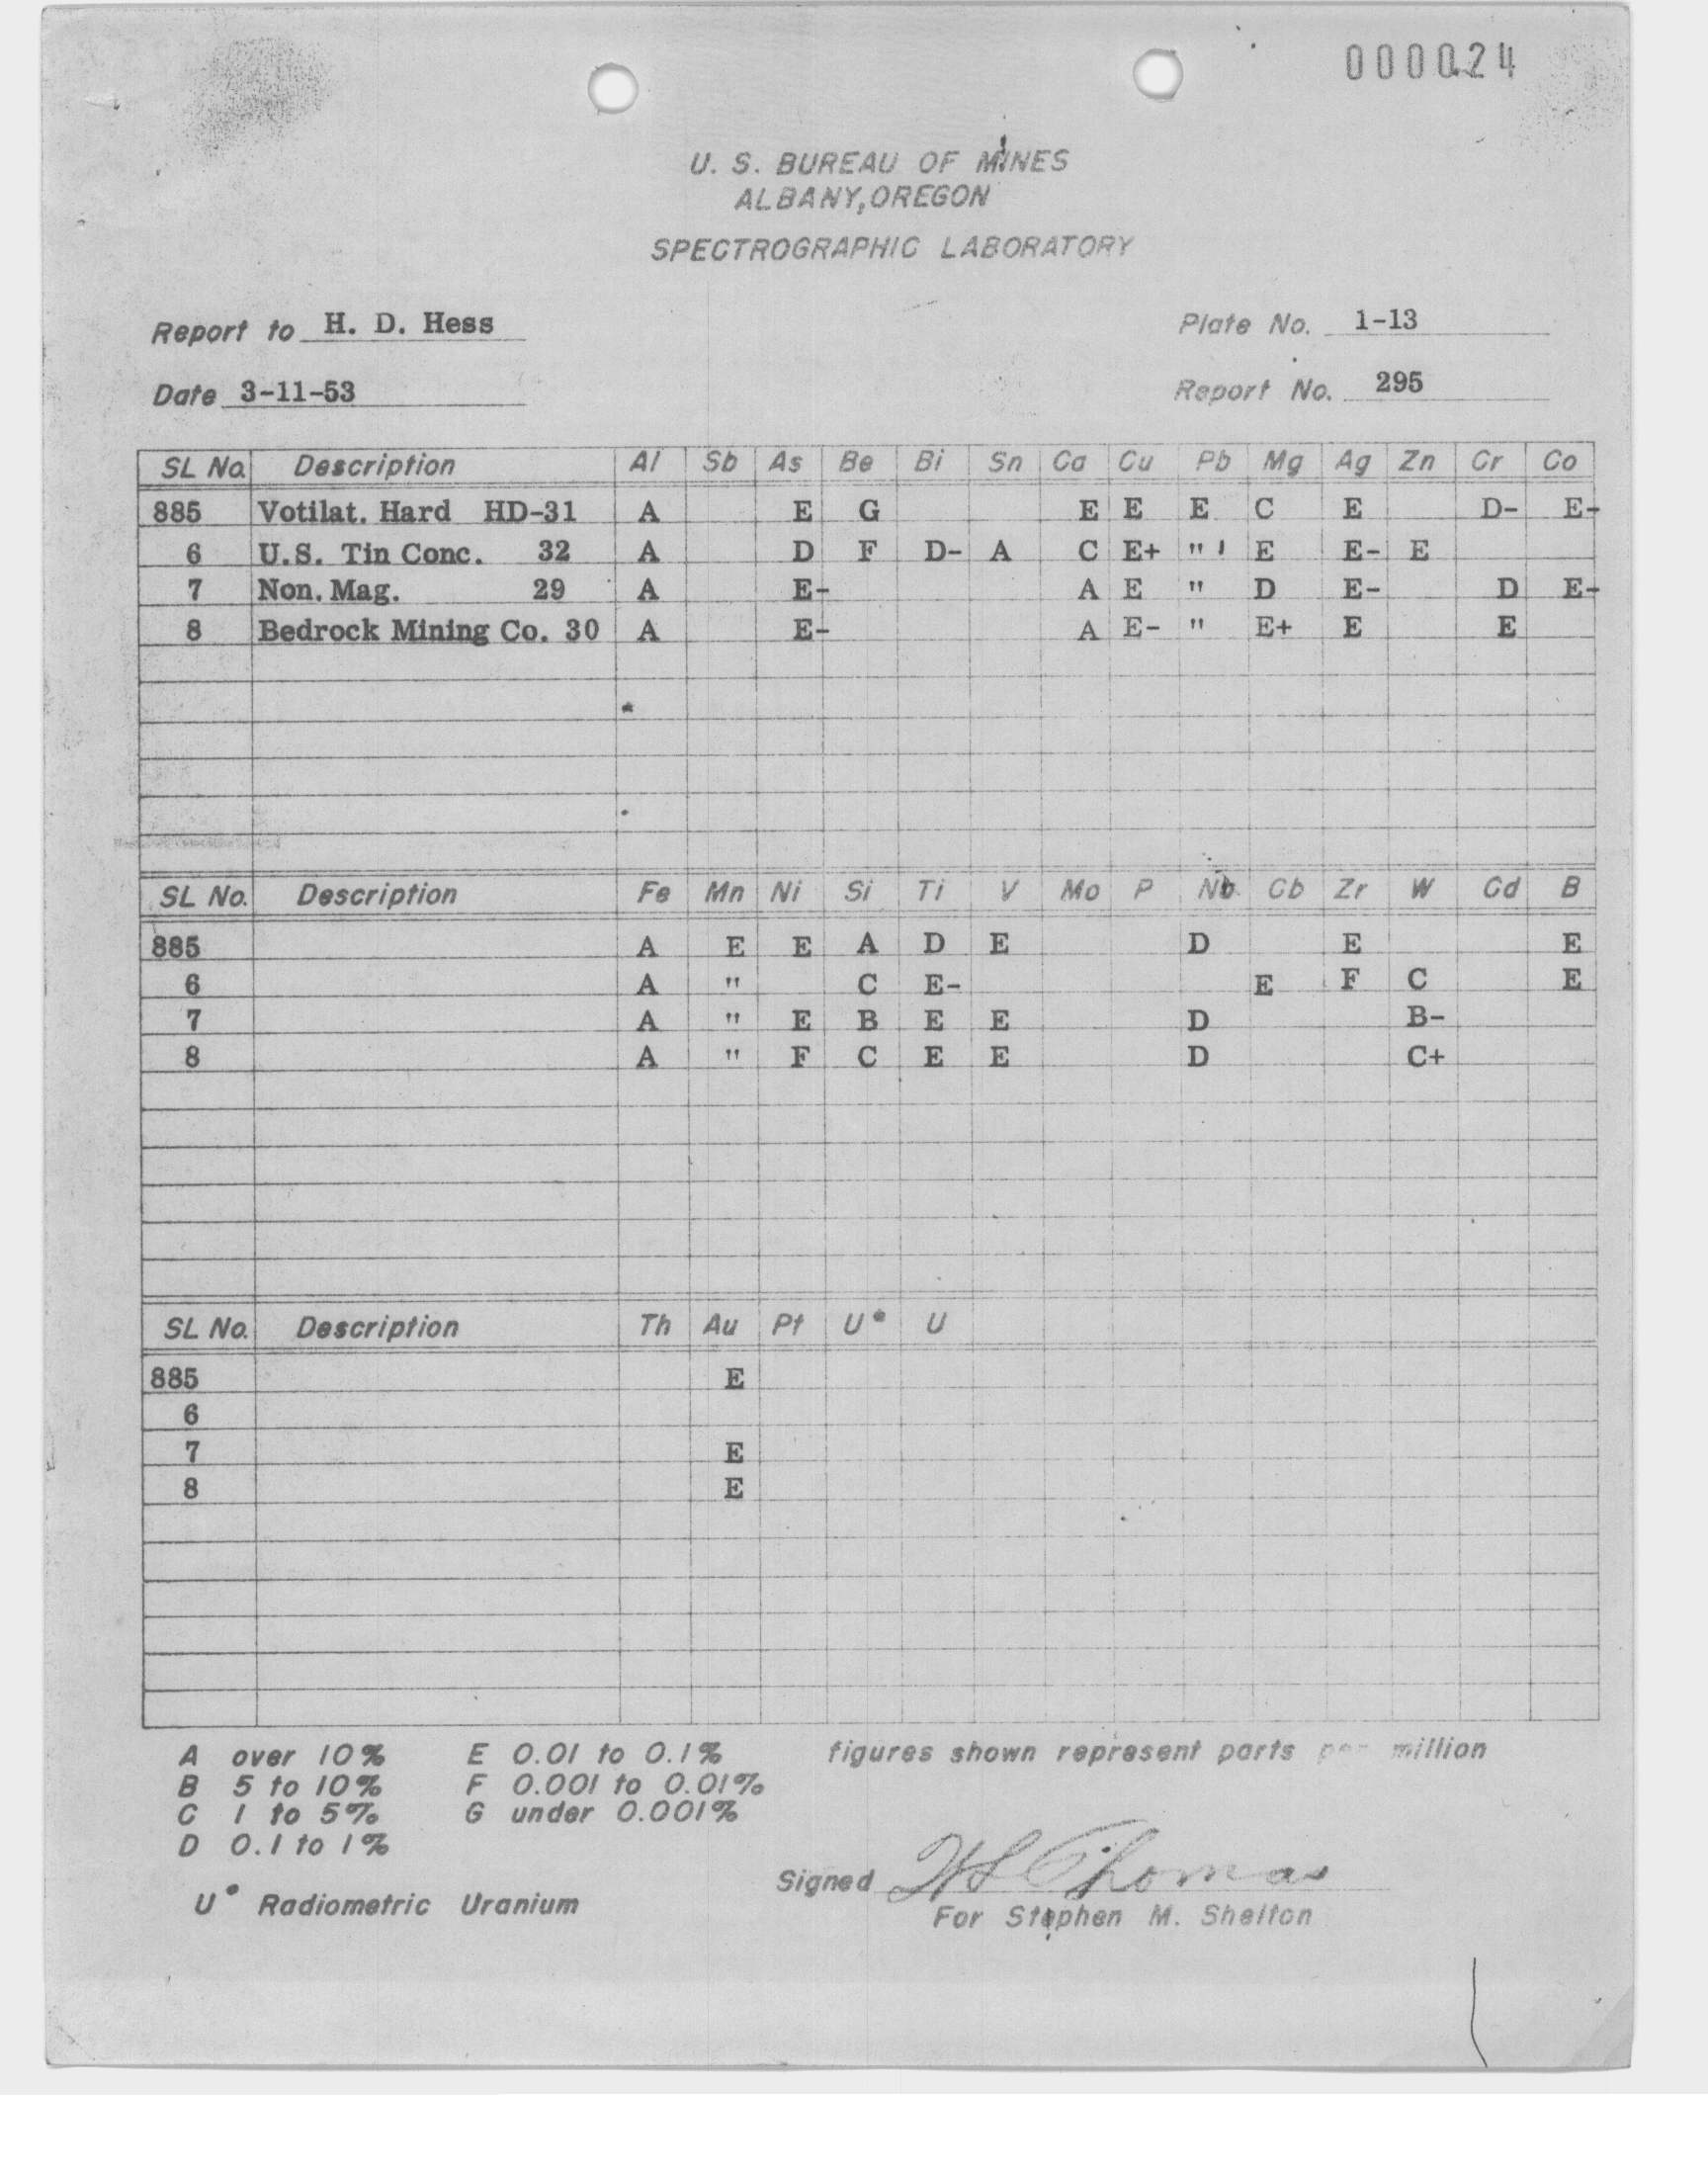 000024
U. S. BUREAU OF MINES
ALBANY, OREGON
SPECTROGRAPHIC LABORATORY
Report to H. D. Hess Plate No. 1-13
Date 3-11-53 Report No. 295
SL No. Description Al Sb As Be Bi Sn Ca Cu Pb Mg Ag Zn Cr Co
885 Votilat. Hard HD-31 A E G E E E C E D- E-
6 U.S. Tin Conc. 32 A D F D- A C E+ " E E- E
7 Non. Mag. 29 A E- A E " D E- D E-
8 Bedrock Mining Co. 30 A E- A E- " E+ E E
SL No. Description Fe Mn Ni Si Ti V Mo P Nb Cb Zr W Cd B
885 A E E A D E D E E
6 A " C E- E F C E
7 A " E B E E D B-
8 A " F C E E D C+
SL No. Description Th Au Pt U* U
885 E
6
7 E
8 E
A over 10% E 0.01 to 0.1% figures shown represent parts per million
B 5 to 10% F 0.001 to 0.01%
C 1 to 5% G under 0.001%
D 0.1 to 1%
U* Radiometric Uranium
Signed H S Thomas
For Stephen M. Shelton